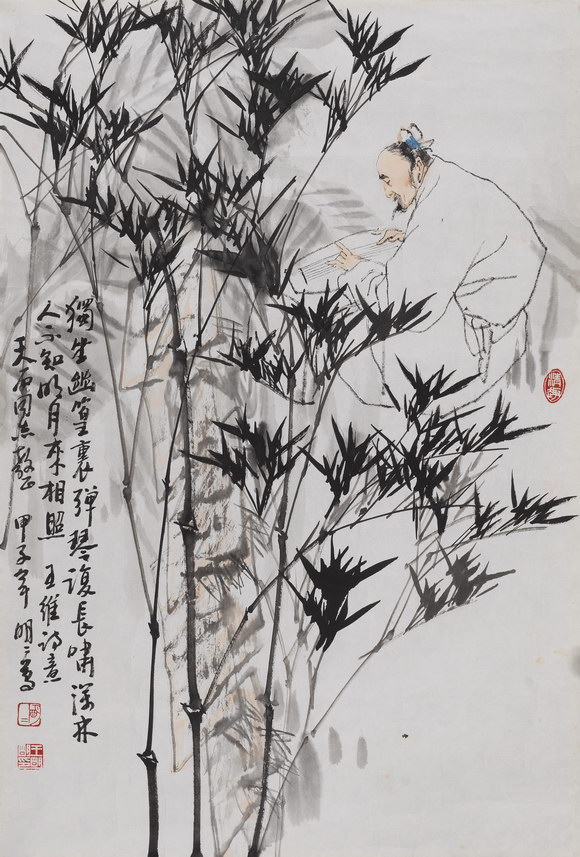 獨坐幽篁裏彈琴復長嘯深林
人不知明月來相照 王維詩意
天雨同志教正 甲子年 明明寫
清趣